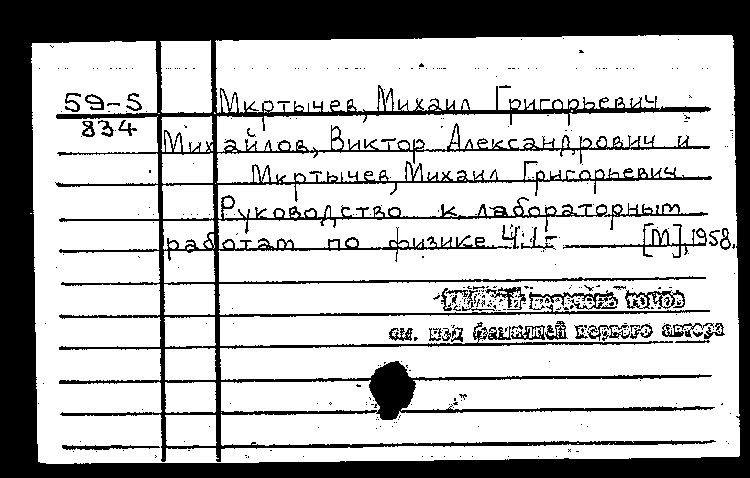 59-5 Мкртычев, Михаил Григорьевич
834
Михайлов, Виктор Александрович и
Мкртычев, Михаил Григорьевич
Руководство к лабораторным
работам по физике Ч.1- [М], 1958.
перечень томов
см. под фамилией первого автора